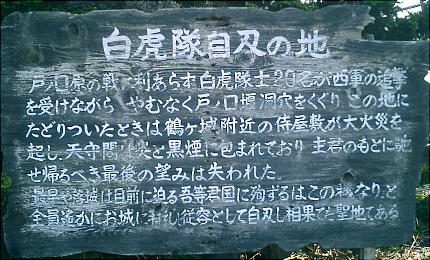 白虎隊自刃の地
戸ノ口原の戦い利あらず白虎隊士20名が西軍の追撃
を受けながら やむなく戸ノ口堰洞穴をくぐり この地に
たどりついたときは鶴ヶ城附近の侍屋敷が大火災を
起し、天守閣は炎と黒煙に包まれており 主君のもとに馳
せ帰るべき最後の望みは失われた。
最早や落城は目前に迫る吾等君国に殉ずるはこの秋なり、と
全員遥かにお城に拝礼し従容として自刃し相果てた聖地である